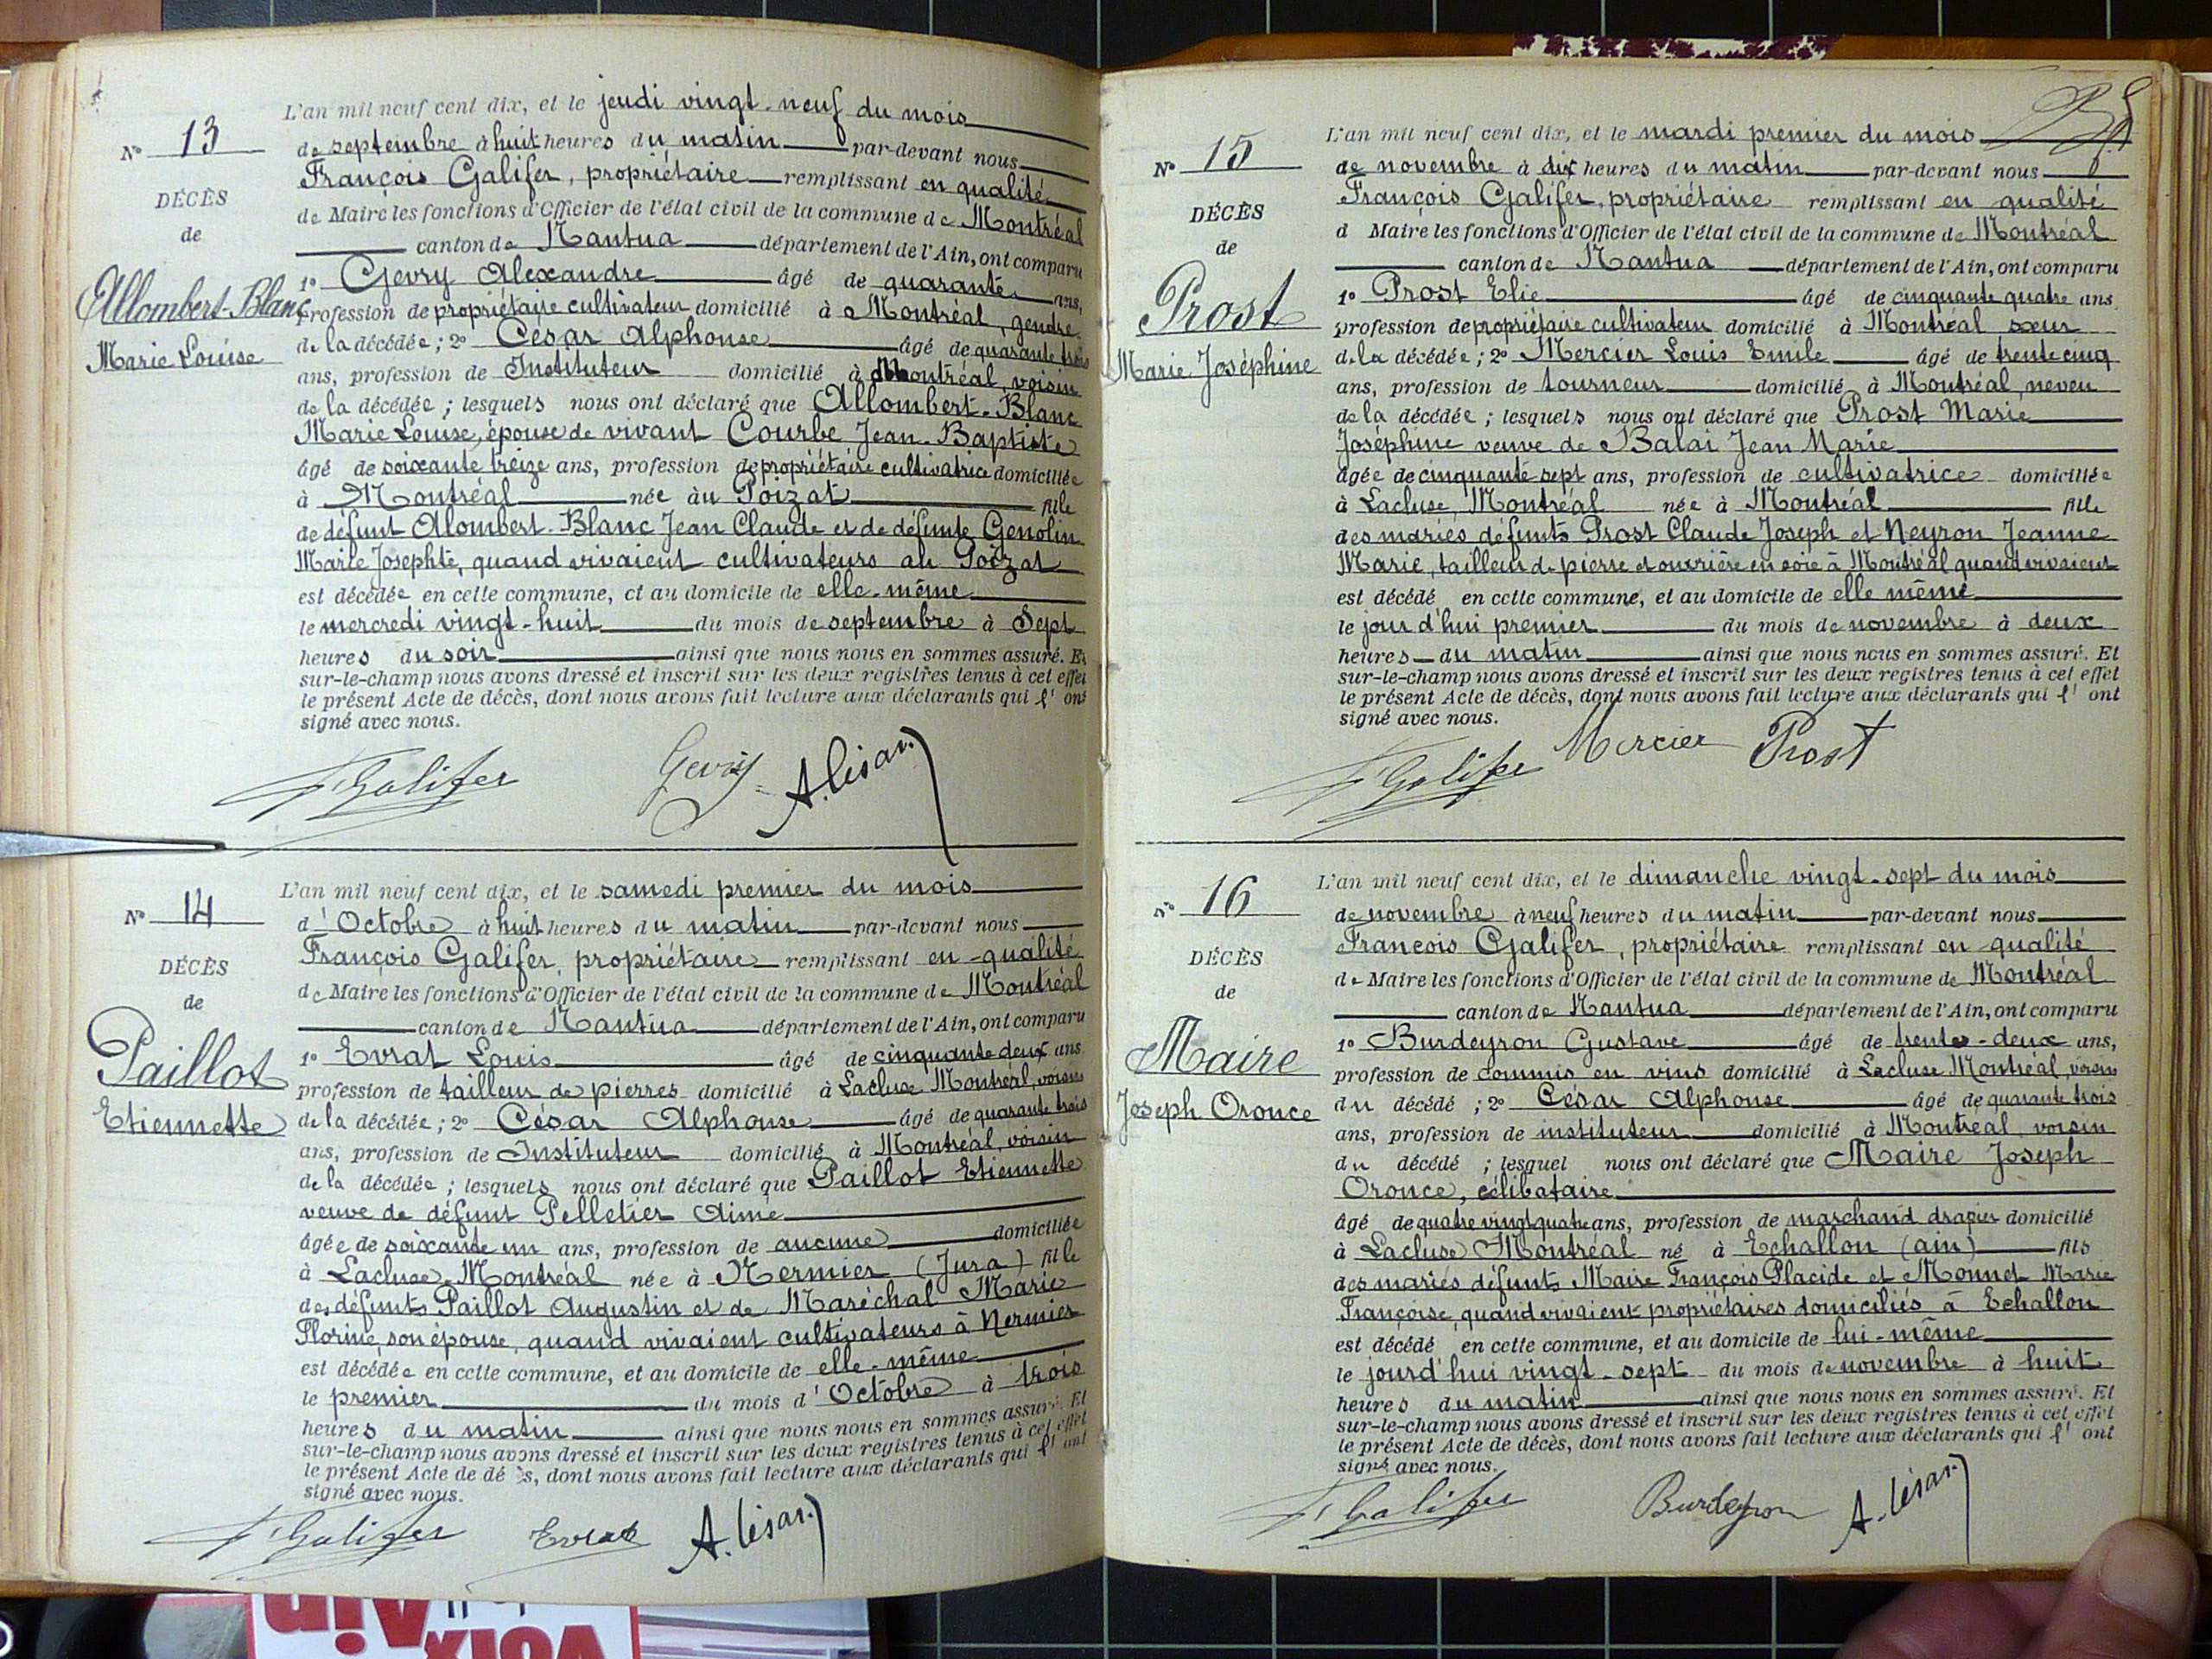 L'an mil neuf cent dix, et le jeudi vingt-neuf du mois
N° 13
de septembre à huit heures du matin par-devant nous
François Galifer, propriétaire remplissant en qualité
DÉCÈS
de Maire les fonctions d'Officier de l'état civil de la commune de Montréal
de
canton de Nantua département de l'Ain, ont comparu
Allombert-Blanc
Marie Louise
1° Gevry Alexandre âgé de quarante ans,
profession de propriétaire cultivateur domicilié à Montréal, gendre
de la décédée ; 2° César Alphonse âgé de quarante trois
ans, profession de Instituteur domicilié à Montréal, voisin
de la décédée ; lesquels nous ont déclaré que Allombert-Blanc
Marie Louise, épouse de vivant Courbe Jean-Baptiste
âgé de soixante treize ans, profession de propriétaire cultivatrice domiciliée
à Montréal née au Poizat fille
de défunt Alombert-Blanc Jean Claude et de défunte Genolin
Marie Josephte, quand vivaient cultivateurs au Poizat
est décédée en cette commune, et au domicile de elle-même
le mercredi vingt-huit du mois de septembre à Sept
heures du soir ainsi que nous nous en sommes assuré. Et
sur-le-champ nous avons dressé et inscrit sur les deux registres tenus à cet effet
le présent Acte de décès, dont nous avons fait lecture aux déclarants qui l'ont
signé avec nous.
F Galifer Gevry A. César
L'an mil neuf cent dix, et le samedi premier du mois
N° 14
d'Octobre à huit heures du matin par-devant nous
François Galifer, propriétaire remplissant en qualité
DÉCÈS
de Maire les fonctions d'Officier de l'état civil de la commune de Montréal
de
canton de Nantua département de l'Ain, ont comparu
Paillot
Etiennette
1° Evrat Louis âgé de cinquante deux ans
profession de tailleur de pierres domicilié à Lacluse Montréal, voisin
de la décédée ; 2° César Alphonse âgé de quarante trois
ans, profession de Instituteur domicilié à Montréal, voisin
de la décédée ; lesquels nous ont déclaré que Paillot Etiennette
veuve de défunt Pelletier Aimé
âgée de soixante un ans, profession de aucune domiciliée
à Lacluse-Montréal née à Mermier (Jura) fille
des défunts Paillot Augustin et de Maréchal Marie
Florine, son épouse, quand vivaient cultivateurs à Nermier
est décédée en cette commune, et au domicile de elle-même
le premier du mois d'Octobre à trois
heures du matin ainsi que nous nous en sommes assuré. Et
sur-le-champ nous avons dressé et inscrit sur les deux registres tenus à cet effet
le présent Acte de décès, dont nous avons fait lecture aux déclarants qui l'ont
signé avec nous.
F Galifer Evrat A. César
L'an mil neuf cent dix, et le mardi premier du mois
N° 15
de novembre à dix heures du matin par-devant nous
François Galifer, propriétaire remplissant en qualité
DÉCÈS
d Maire les fonctions d'Officier de l'état civil de la commune de Montréal
de
canton de Nantua département de l'Ain, ont comparu
Prost
Marie Joséphine
1° Prost Elie âgé de cinquante quatre ans
profession de propriétaire cultivateur domicilié à Montréal sœur
de la décédée ; 2° Mercier Louis Emile âgé de trente cinq
ans, profession de tourneur domicilié à Montréal, neveu
de la décédée ; lesquels nous ont déclaré que Prost Marie
Joséphine veuve de Balai Jean Marie
âgée de cinquante sept ans, profession de cultivatrice domiciliée
à Lacluse, Montréal née à Montréal fille
des mariés défunts Prost Claude Joseph et Neyron Jeanne
Marie, tailleur de pierre et ouvrière en soie à Montréal quand vivaient
est décédé en cette commune, et au domicile de elle même
le jour d'hui premier du mois de novembre à deux
heures du matin ainsi que nous nous en sommes assuré. Et
sur-le-champ nous avons dressé et inscrit sur les deux registres tenus à cet effet
le présent Acte de décès, dont nous avons fait lecture aux déclarants qui l'ont
signé avec nous.
F Galifer Mercier Prost
L'an mil neuf cent dix, et le dimanche vingt-sept du mois
N° 16
de novembre à neuf heures du matin par-devant nous
François Galifer, propriétaire remplissant en qualité
DÉCÈS
de Maire les fonctions d'Officier de l'état civil de la commune de Montréal
de
canton de Nantua département de l'Ain, ont comparu
Maire
Joseph Oronce
1° Burdeyron Gustave âgé de trente-deux ans,
profession de commis en vins domicilié à Lacluse Montréal, voisin
du décédé ; 2° César Alphonse âgé de quarante trois
ans, profession de instituteur domicilié à Montréal voisin
du décédé ; lesquel nous ont déclaré que Maire Joseph
Oronce, célibataire
âgé de quatre vingt quatre ans, profession de marchand drapier domicilié
à Lacluse Montréal né à Echallon (ain) fils
des mariés défunts Maire François Placide et Monnet Marie
Françoise, quand vivaient propriétaires domiciliés à Echallon
est décédé en cette commune, et au domicile de lui-même
le jourd'hui vingt-sept du mois de novembre à huit
heures du matin ainsi que nous nous en sommes assuré. Et
sur-le-champ nous avons dressé et inscrit sur les deux registres tenus à cet effet
le présent Acte de décès, dont nous avons fait lecture aux déclarants qui l'ont
signé avec nous.
F Galifer Burdeyron A. César